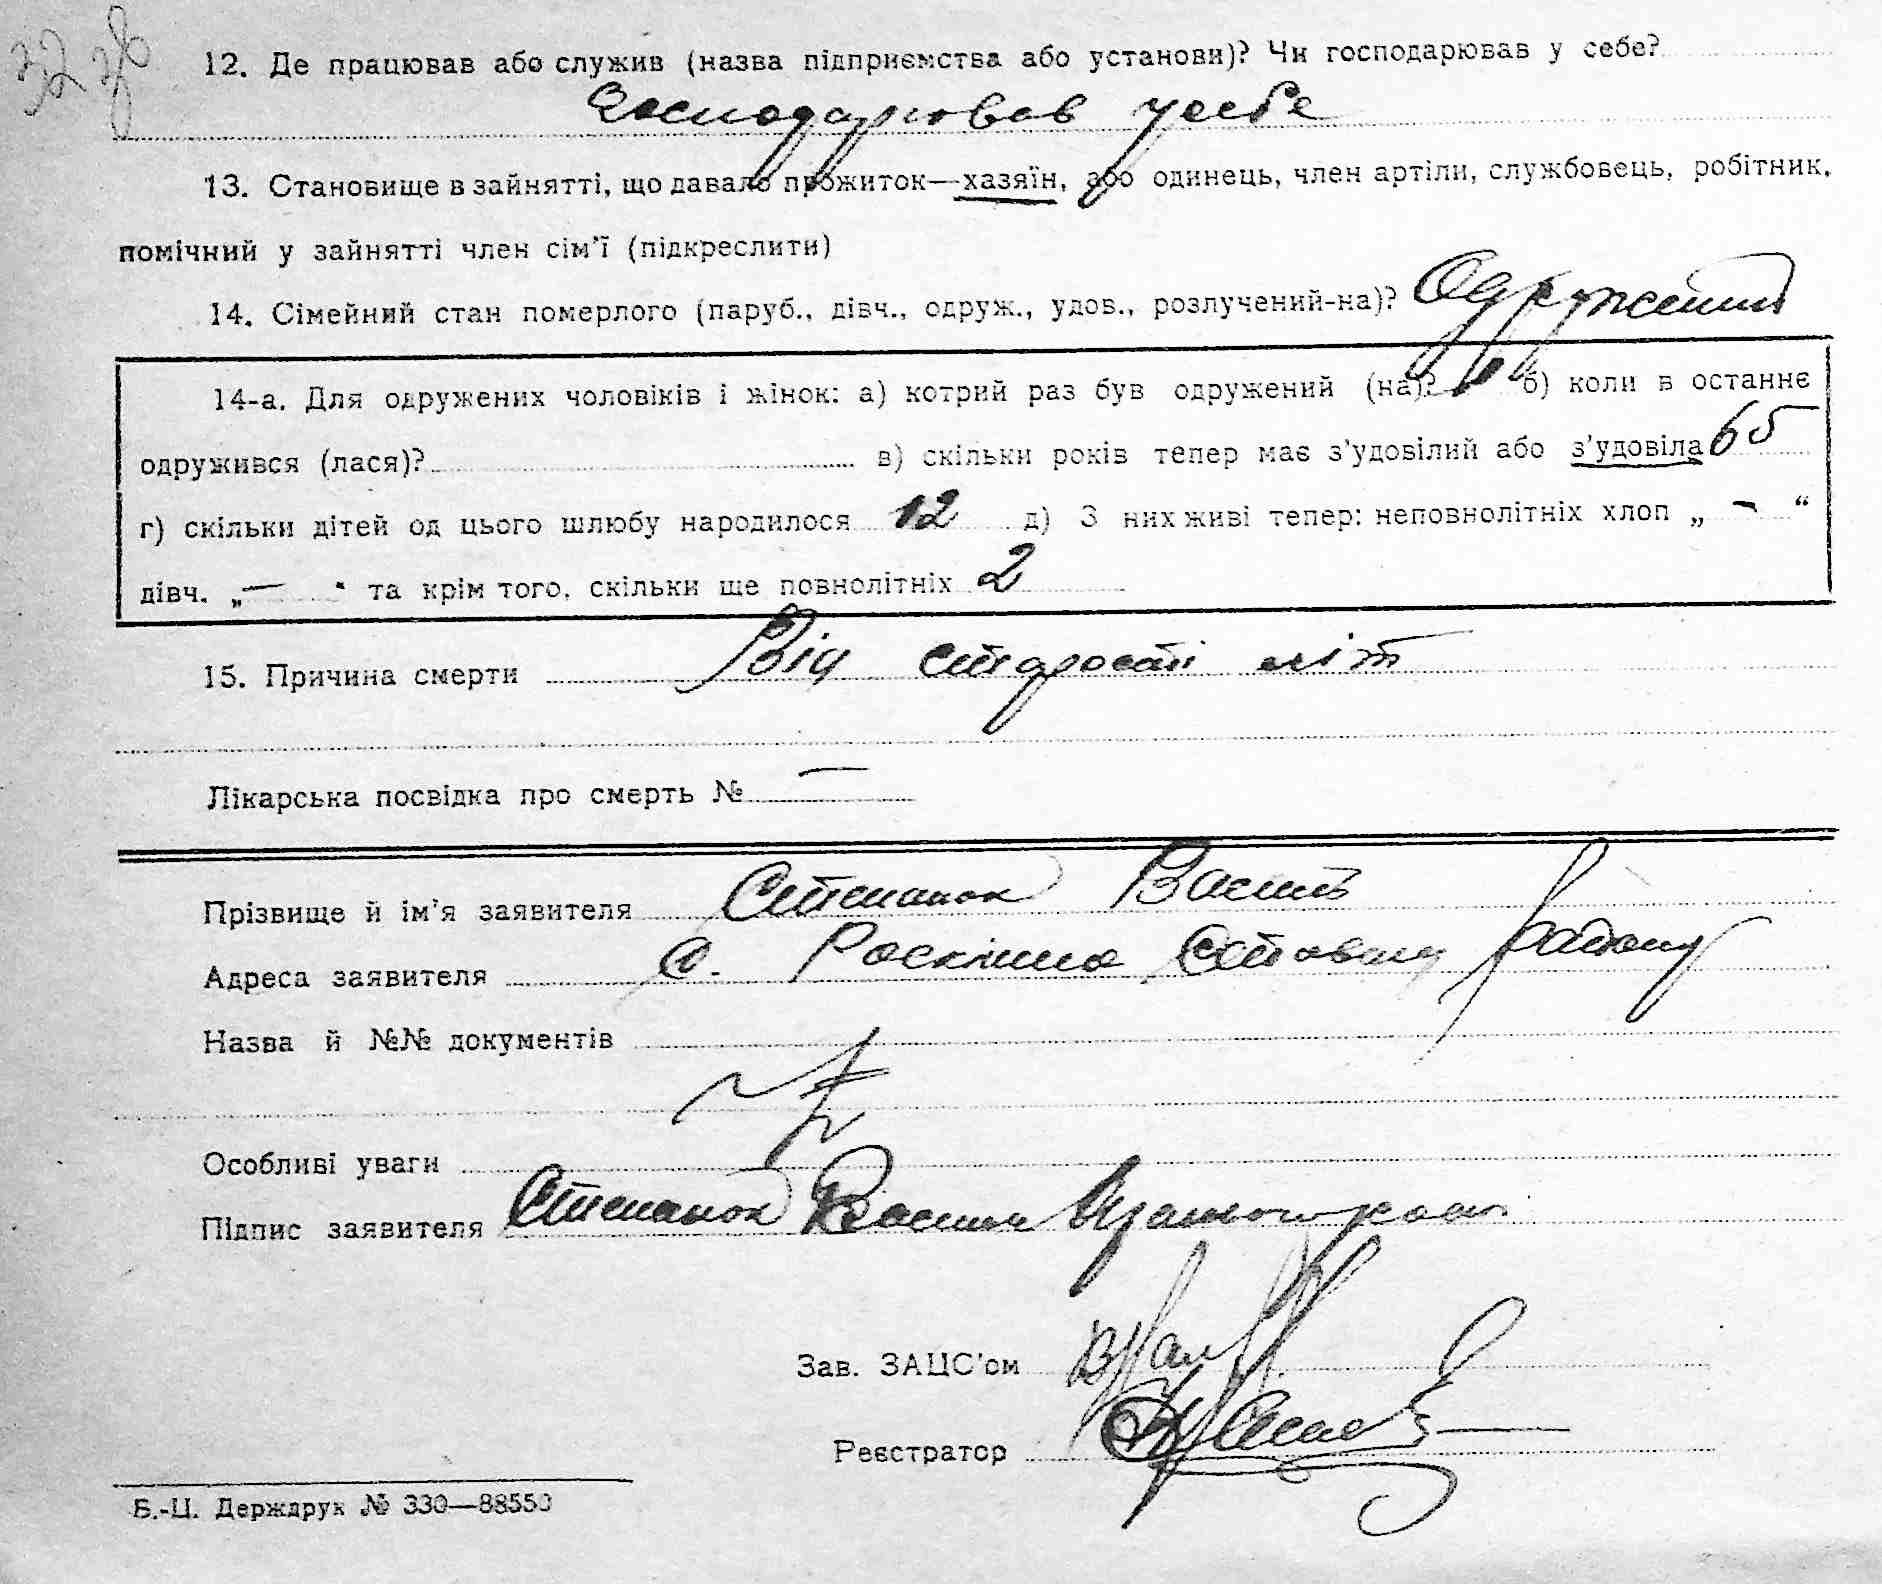 12. Де працював або служив (назва підприємства або установи)? Чи господарював у себе?
Господарював у себе
13. Становище в зайнятті, що давало прожиток—хазяїн, або одинець, член артіли, службовець, робітник,
помічний у зайнятті член сім'ї (підкреслити)
14. Сімейний стан померлого (паруб., дівч., одруж., удов., розлучений-на)? Одружений
14-а. Для одружених чоловіків і жінок: а) котрий раз був одружений (на)? 1 б) коли в останнє
одружився (лася)? в) скільки років тепер має з'удовілий або з'удовіла 65
г) скільки дітей од цього шлюбу народилося 12 д) З них живі тепер: неповнолітніх хлоп „ — “
дівч. „ — “ та крім того, скільки ще повнолітніх 2
15. Причина смерти Від старості літ
Лікарська посвідка про смерть № —
Прізвище й ім'я заявителя Степанюк Василь
Адреса заявителя С. Роскішна Ставищ району
Назва й №№ документів
Особливі уваги
Підпис заявителя Степанюк Василь
Зав. ЗАЦС'ом
Реєстратор
Б.-Ц. Держдрук № 330—88550